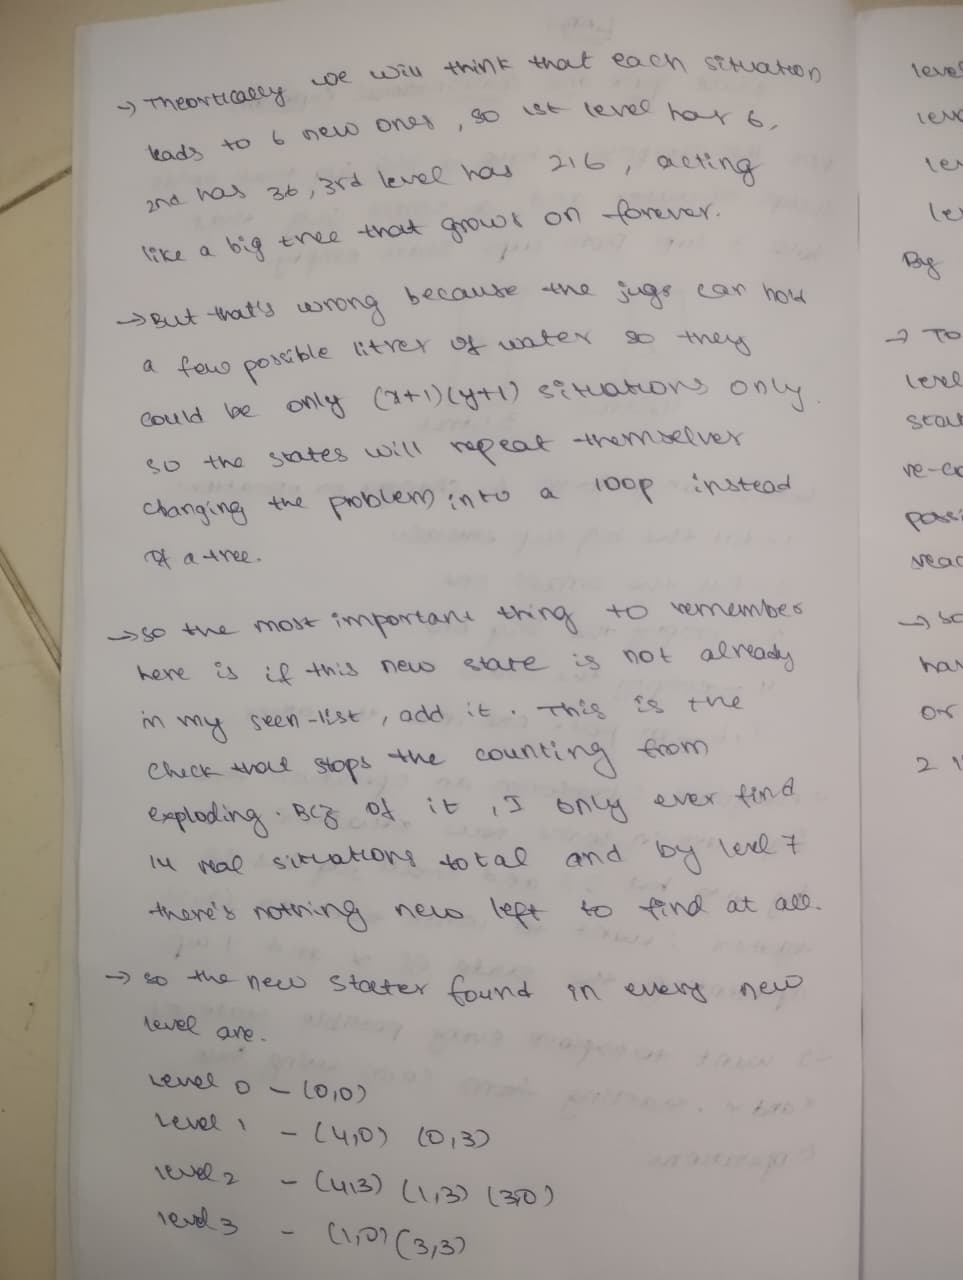 → Theortically we will think that each situation
leads to 6 new ones, so 1st level has 6,
2nd has 36, 3rd level has 216, acting
like a big tree that grows on forever.
→ But that's wrong because the jugs can hold
a few possible litres of water so they
could be only (x+1)(y+1) situations only.
so the states will repeat themselves
changing the problem into a loop instead
of a tree.
→ so the most important thing to remember
here is if this new state is not already
in my seen-list, add it. This is the
check that stops the counting from
exploding. Bcz of it, I only ever find
14 real situations total and by level 7
there's nothing new left to find at all.
→ so the new states found in every new
level are.
Level 0 - (0,0)
Level 1 - (4,0) (0,3)
level 2 - (4,3) (1,3) (3,0)
level 3 - (1,0) (3,3)
level
By
→ To
level
re-co
possi
reac
→ so
hav
or
2